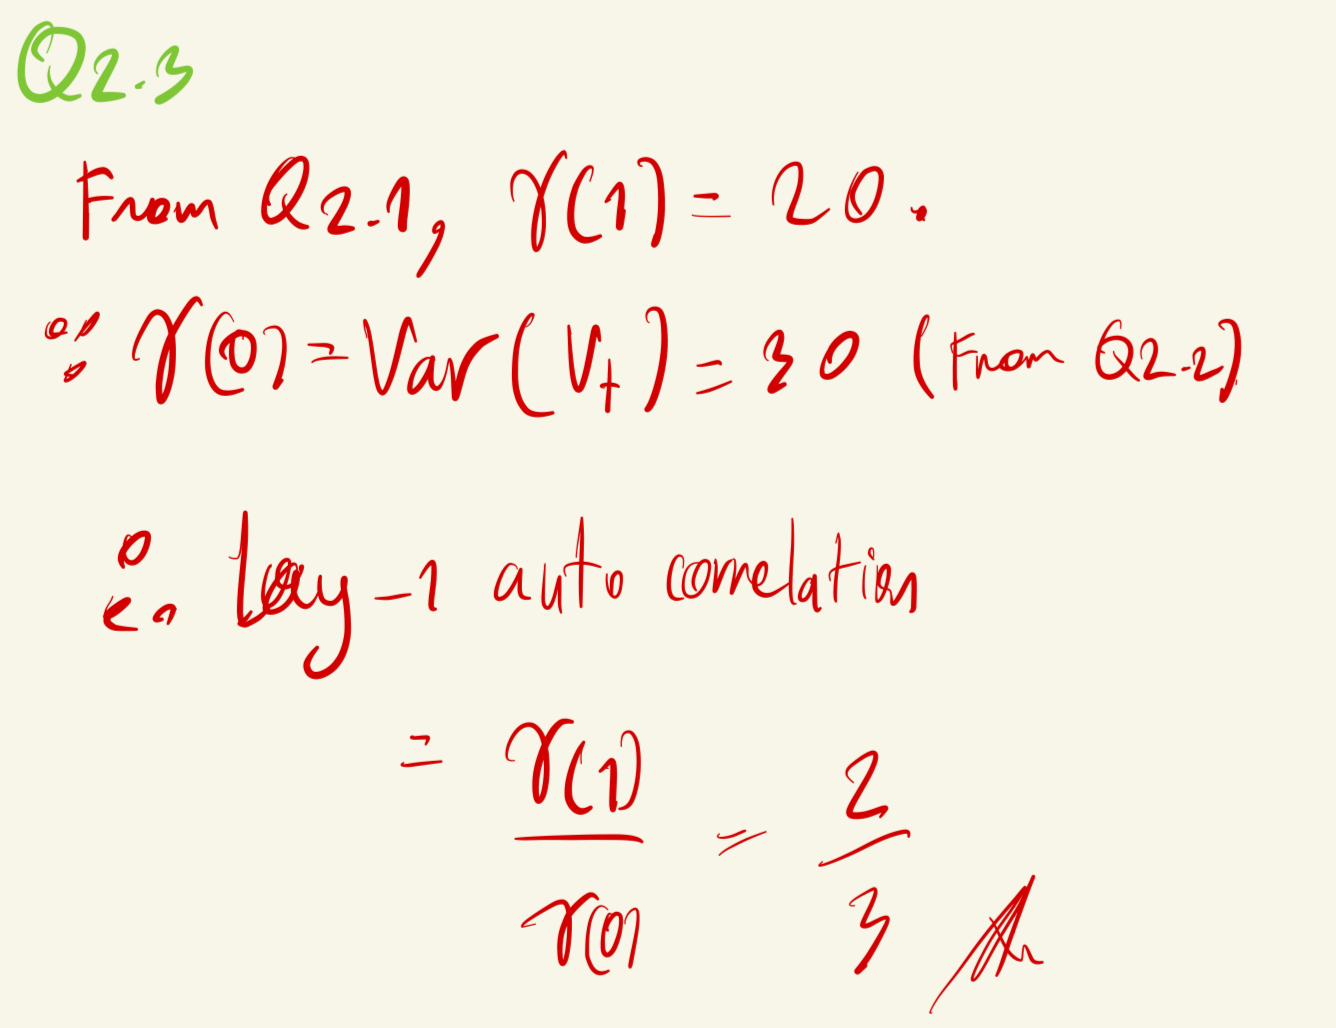 Q2.3
From Q2.1, γ(1) = 20.
∵ γ(0) = Var(V_t) = 30 (From Q2.2)
∴ Lag-1 auto correlation
= γ(1)/γ(0) = 2/3